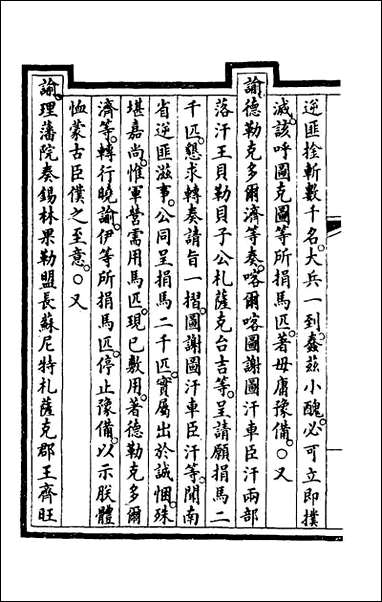 逆匪捡斬數千名。大兵一到。蠢茲小醜。必可立即撲
滅。該呼圖克圖等所捐馬匹。著毋庸豫備。○又
諭。德勒克多爾濟等奏。喀爾喀圖謝圖汗車臣汗兩部
落汗王貝勒貝子公札薩克台吉等。呈請願捐馬二
千匹。懇求轉奏請旨一摺。圖謝圖汗車臣汗等。聞南
省逆匪滋事。公同呈捐馬二千匹。實屬出於誠悃。殊
堪嘉尚。惟軍營需用馬匹。現已敷用。著德勒克多爾
濟等。轉行曉諭。伊等所捐馬匹。停止豫備。以示朕體
恤蒙古臣僕之至意。○又
諭。理藩院奏錫林果勒盟長蘇尼特札薩克郡王齊旺